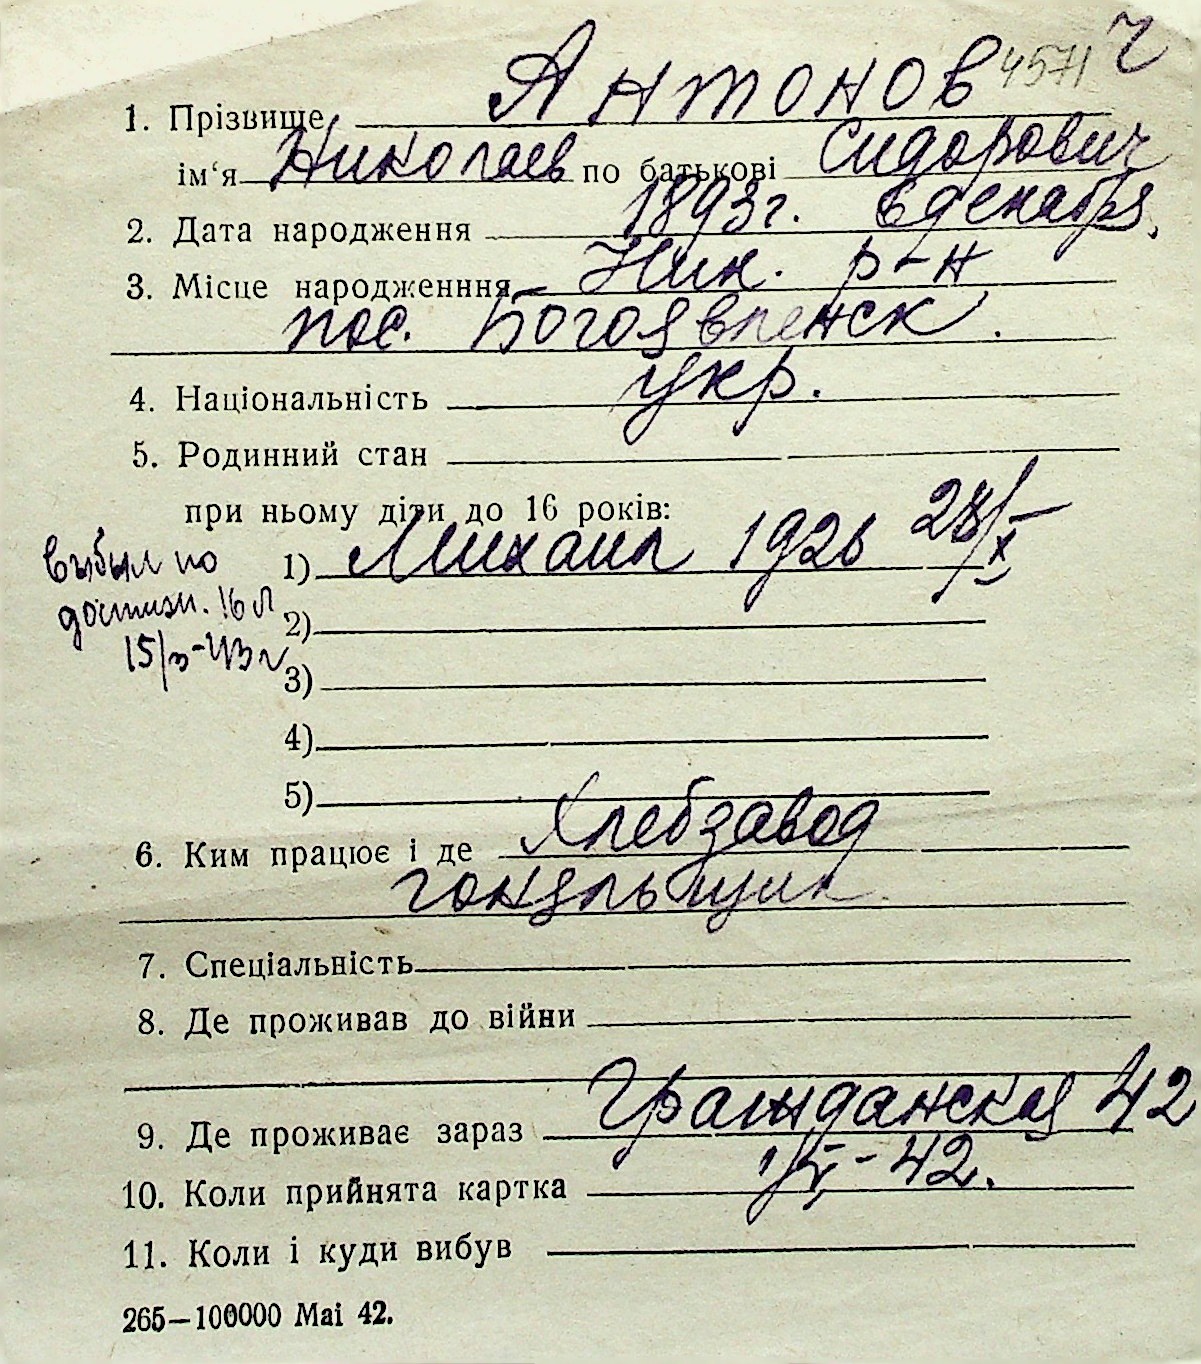 4571 ч
1. Прізвище Антонов
ім'я Николаев по батькові Сидорович
2. Дата народження 1893г. 6 декабря
3. Місце народженння Ник. р-н
пос. Богоявленск.
4. Національність укр.
5. Родинний стан
при ньому діти до 16 років:
1) Михаил 1926 28/X
выбыл по
достиж. 16 л
15/III-43 г
2)
3)
4)
5)
6. Ким працює і де Хлебзавод
7. Спеціальність
8. Де проживав до війни
9. Де проживає зараз Гражданская 42
10. Коли прийнята картка -42.
11. Коли і куди вибув
265—100000 Mai 42.